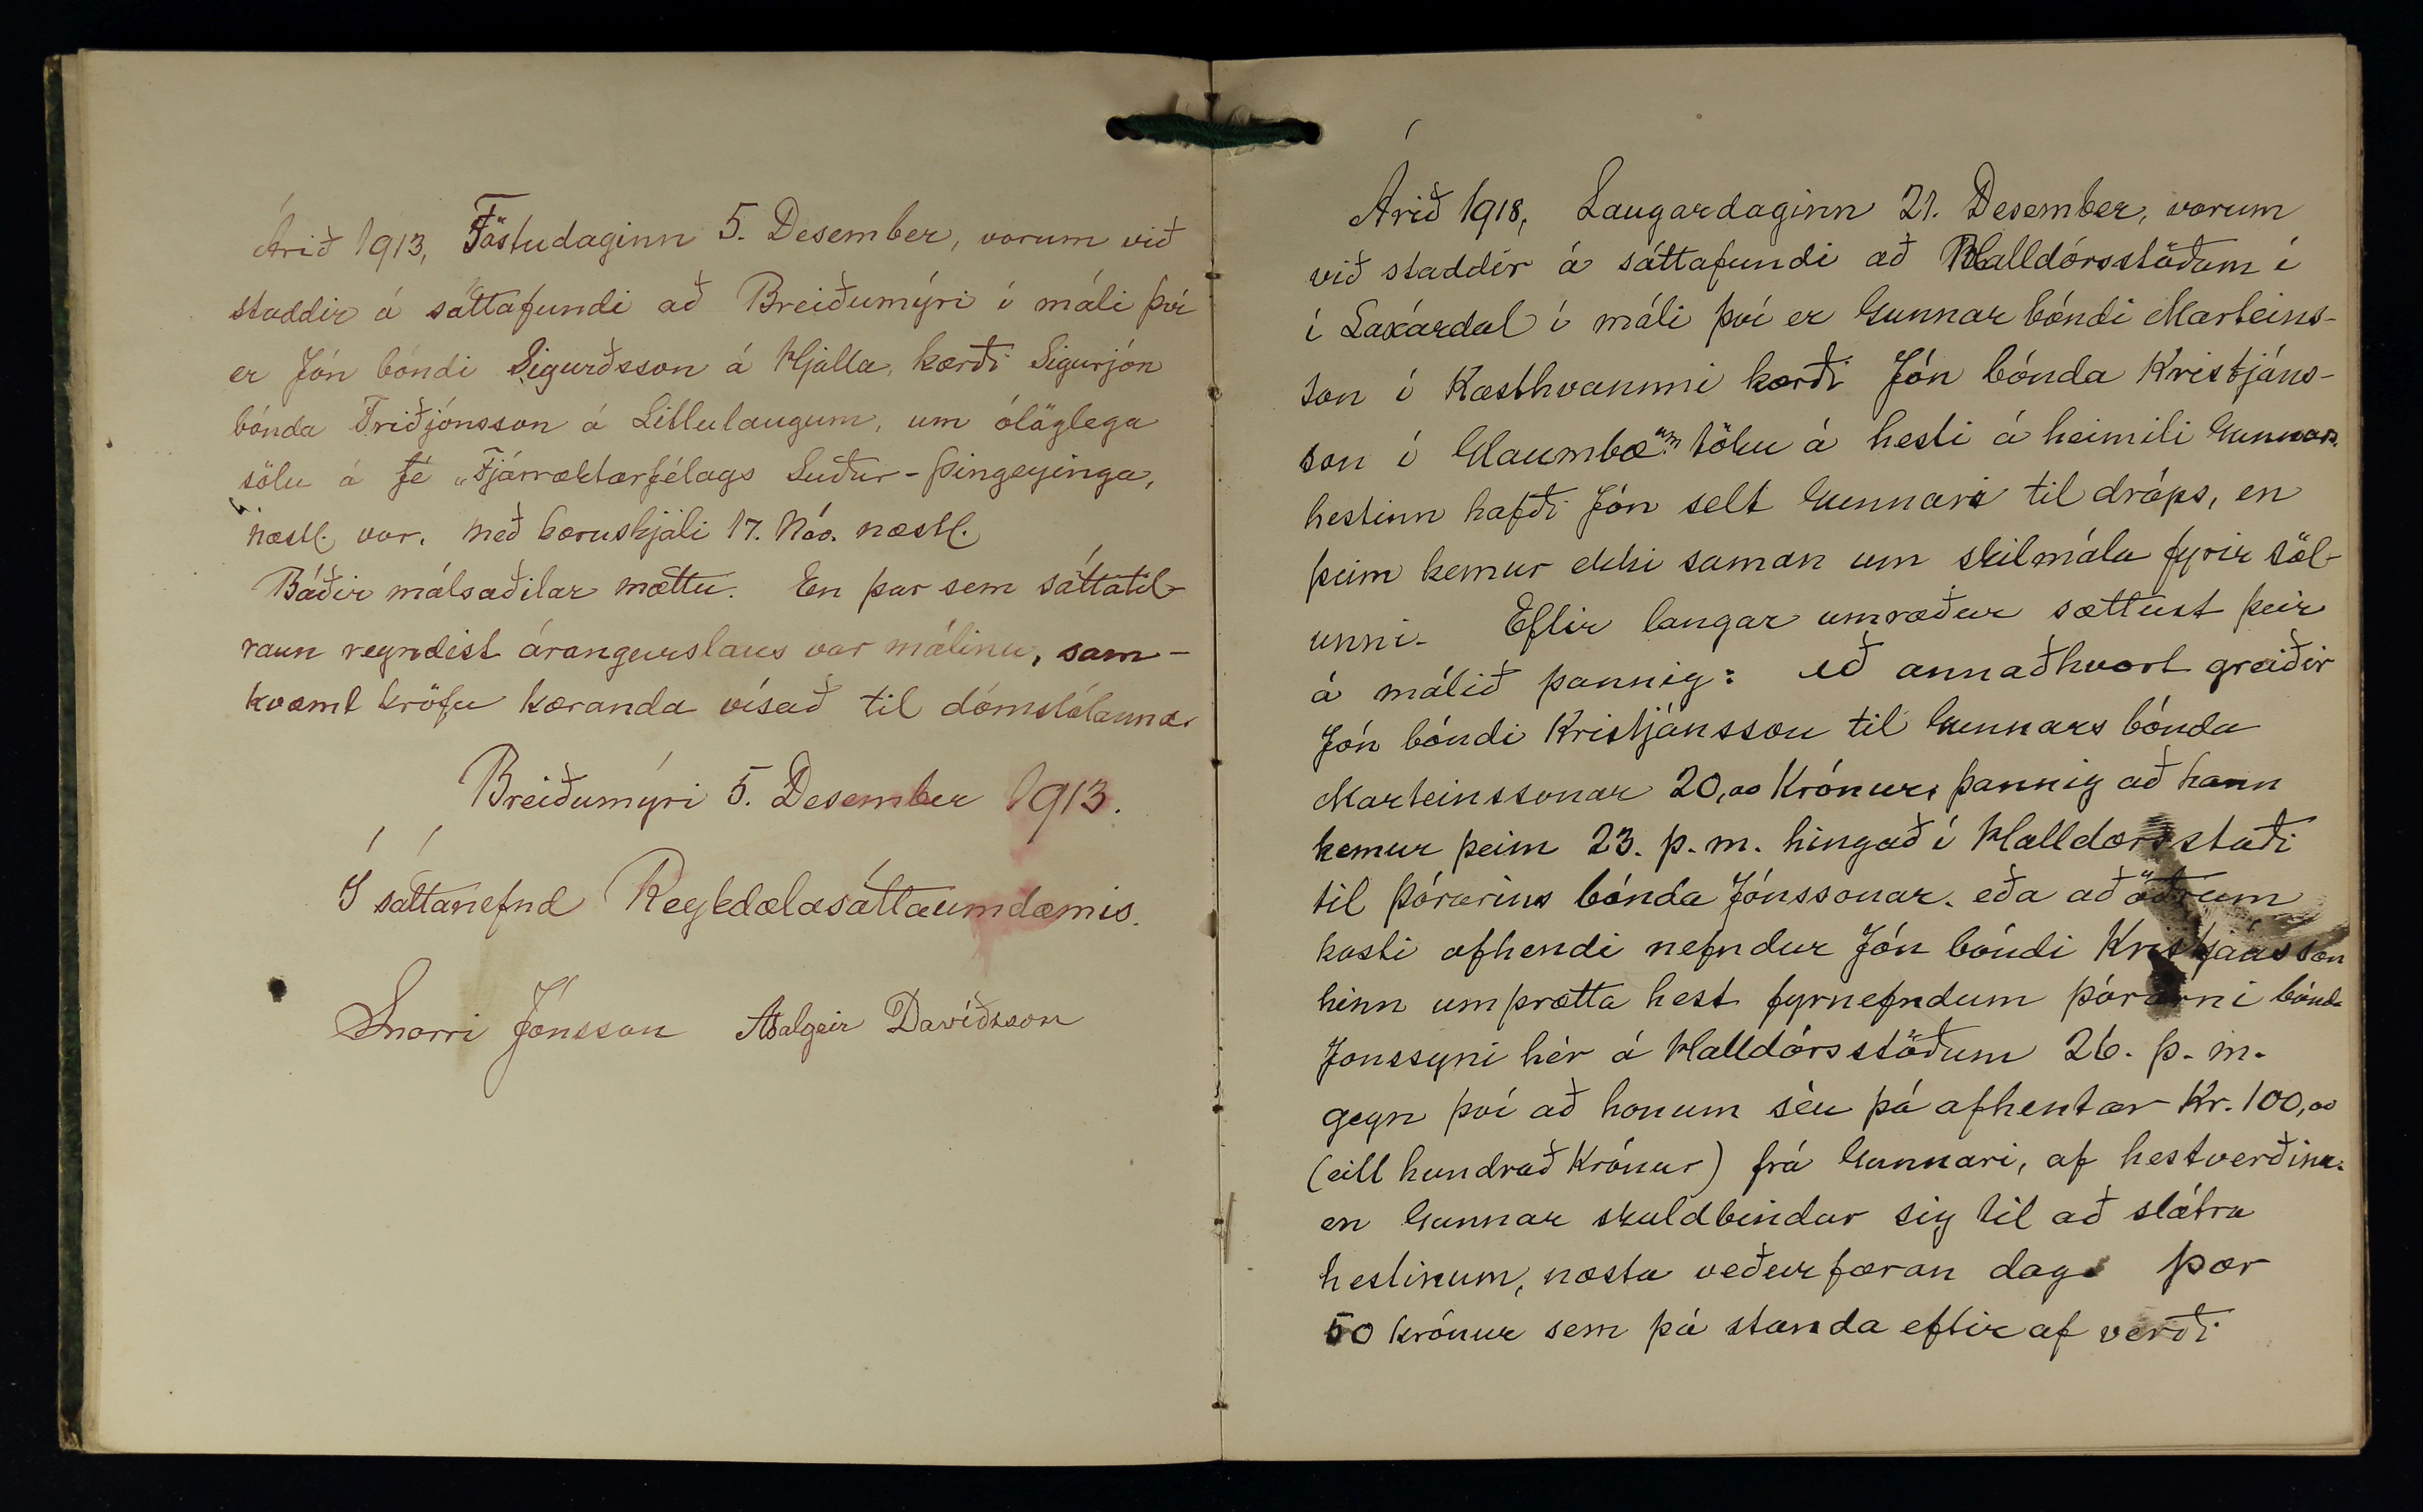 Árið 1913, Föstudaginn 5. Desember, vorum við
staddir á sáttafundi að Breiðumýri í máli því
er Jón bóndi Sigurðsson á Hjalla, kærði Sigurjón
bónda Friðjónsson á Litlulaugum, um ólöglega
sölu á fé „Fjárræktarfélags Suður-Þingeyinga,
næstl. vor. með kæruskjali 17. Nóv. næstl.
Báðir málsaðilar mættu. En þar sem sáttatil-
raun reyndist árangurslaus var málinu, sam-
kvæmt kröfu kæranda vísað til dómstólanna.
Breiðumýri 5. Desember 1913.
Í sáttanefnd Reykdælasáttaumdæmis.
Snorri Jónsson Aðalgeir Davíðsson
Árið 1918, Laugardaginn 21. Desember, vorum
við staddir á sáttafundi að Halldórsstöðum í
í Laxárdal í máli því er Gunnar bóndi Marteins-
son í Kasthvammi kærði Jón bónda Kristjáns-
son í Glaumbæ um töku á hesti á heimili Gunnars.
hestinn hafði Jón selt Gunnari til dráps, en
þeim kemur ekki saman um skilmála fyrir söl-
unni. Eftir langar umræður sættust þeir
á málið þannig: Að annaðhvort greiðir
Jón bóndi Kristjánsson til Gunnars bónda
Marteinssonar 20,00 Krónur, þannig að hann
kemur þeim 23. þ.m. hingað í Halldórsstaði
til Þórarins bónda Jónssonar. eða að öðrum
kosti afhendi nefndur Jón bóndi Kristjánsson
hinn umþrætta hest fyrnefndum Þórarni bónda
Jonssyni hér á Halldórsstöðum 26. þ.m.
gegn því að honum séu þá afhentar Kr. 100,00
(eitt hundrað Krónur) frá Gunnari, af hestverðinu.
en Gunnar skuldbindur sig til að slátra
hestinum, næsta veðurfæran dag. Þær
50 krónur sem þá standa eftir af verði